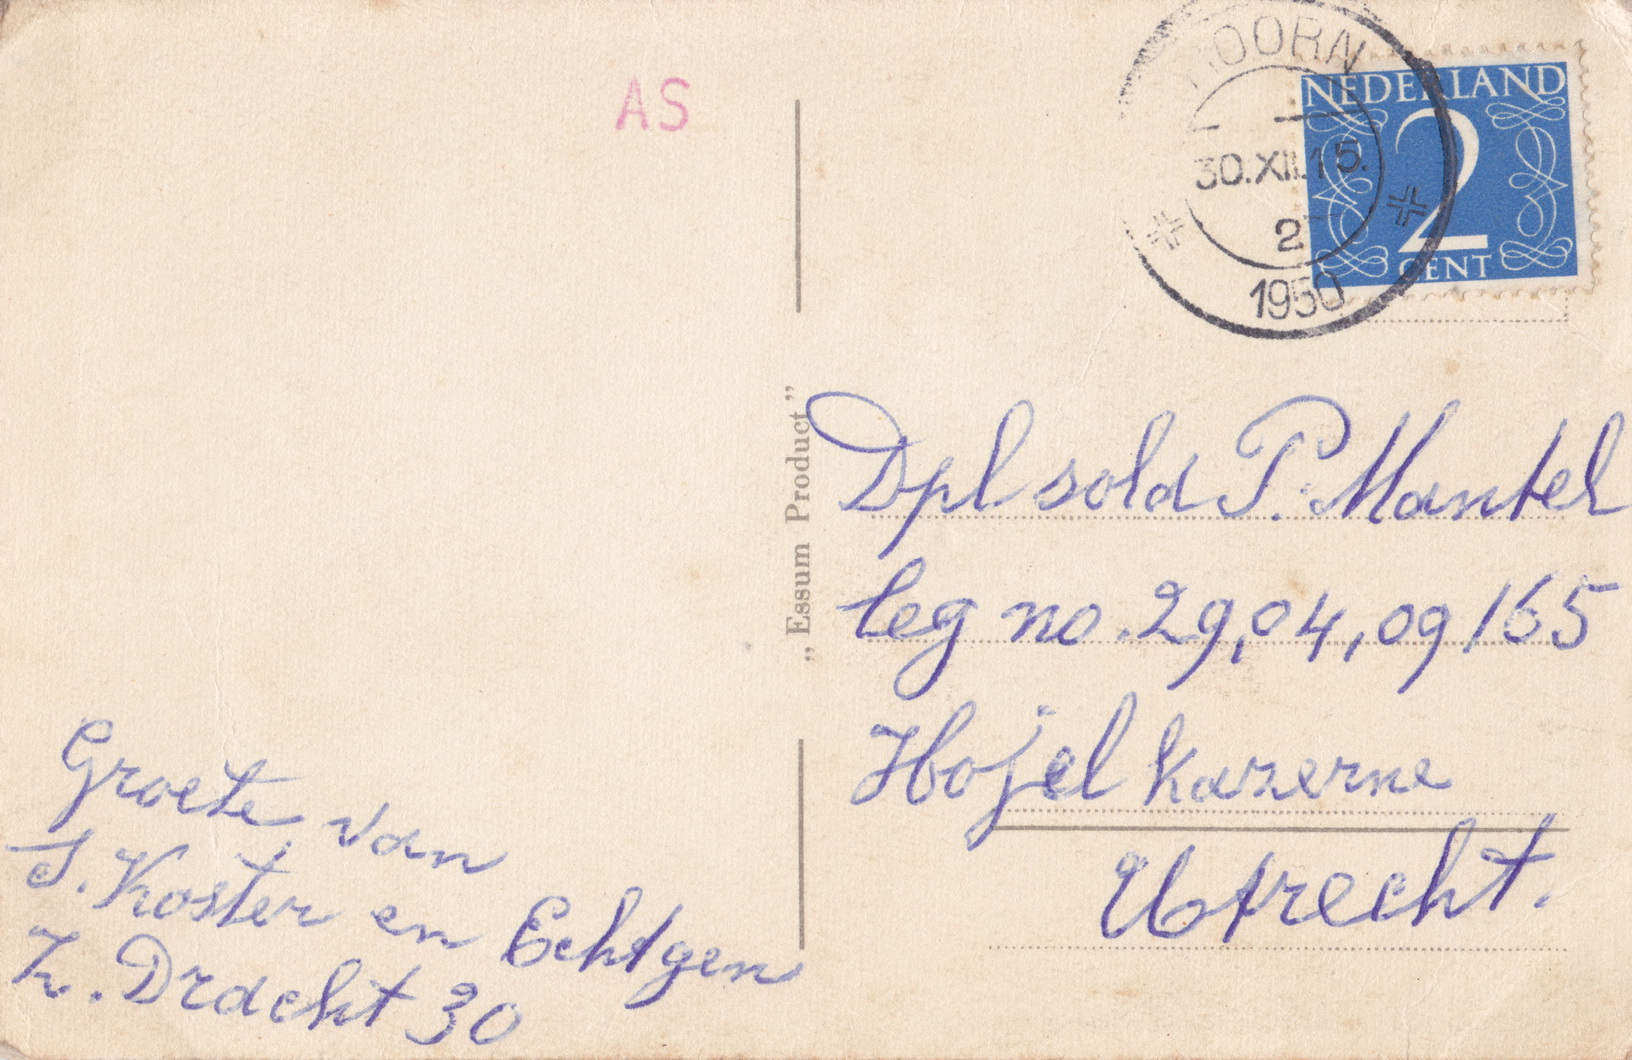 AS
HOORN
30.XII.15.
2
1950
NEDERLAND
2
CENT
„Essum Product”
Dpl sold P. Mantel
leg no. 29,04,09/165
Hojel kazerne
Utrecht.
Groete van
S. Koster en Echtgen
Z. Dracht 30